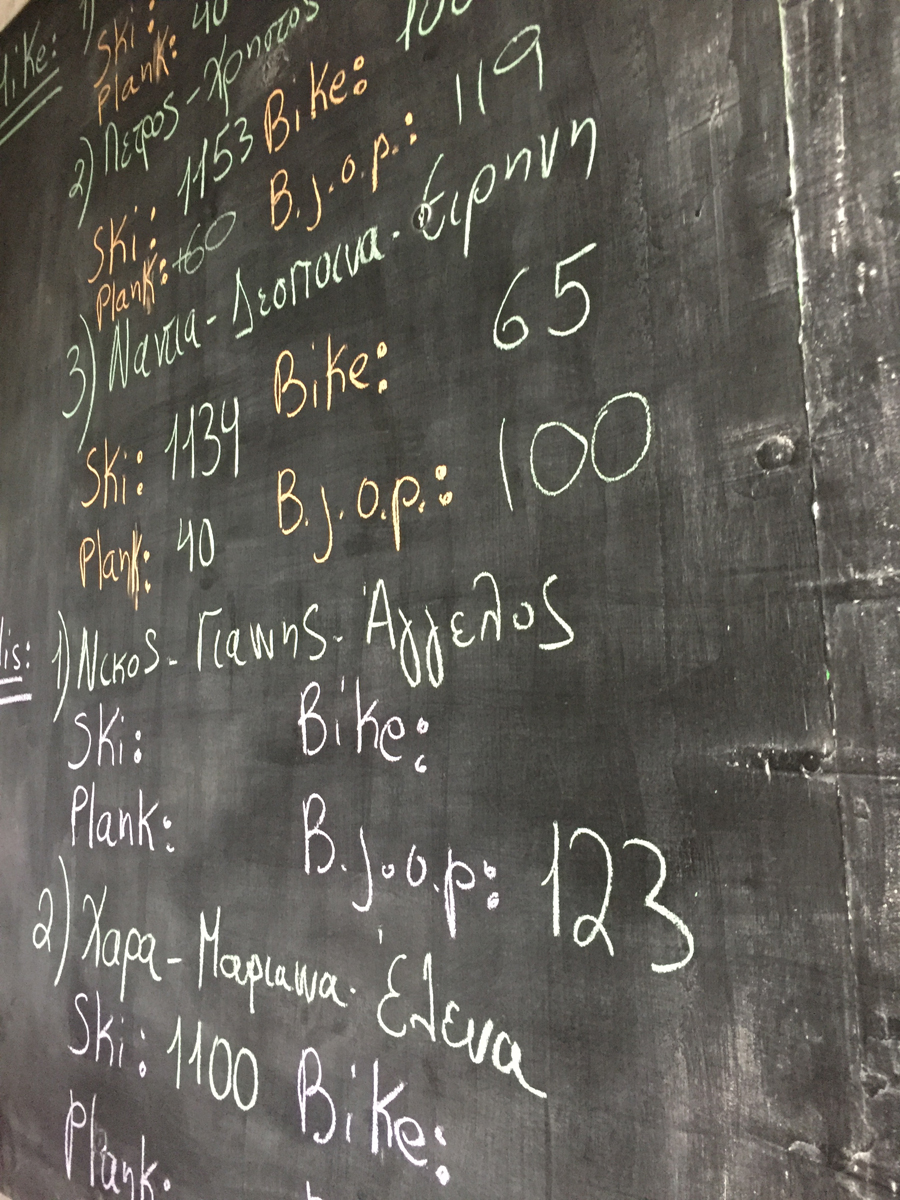 Mike: 1)
Ski: 40
Plank:
2) Πετρος - Χρηστος
Ski: 1153 Bike: 100
Plank: +60 B.j.o.p.: 119
3) Ναντια - Δεσποινα - Ειρηνη
Ski: 1134 Bike: 65
Plank: 40 B.j.o.p.: 100
lis: 1) Νικος - Γιαννης - Άγγελος
Ski: Bike:
Plank: B.j.o.p: 123
2) Χαρα - Μαριαννα - Έλενα
Ski: 1100 Bike:
Plank: